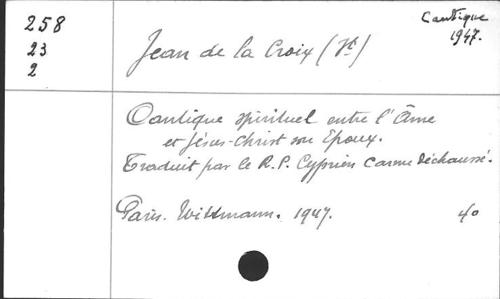 258
23
2
Jean de la Croix (St)
Cantique
1947.
Cantique spirituel entre l'Âme
et Jésus-Christ son Epoux.
Traduit par le R.P. Cyprien Carme Déchaussé.
Paris. Wittmann. 1947.
40